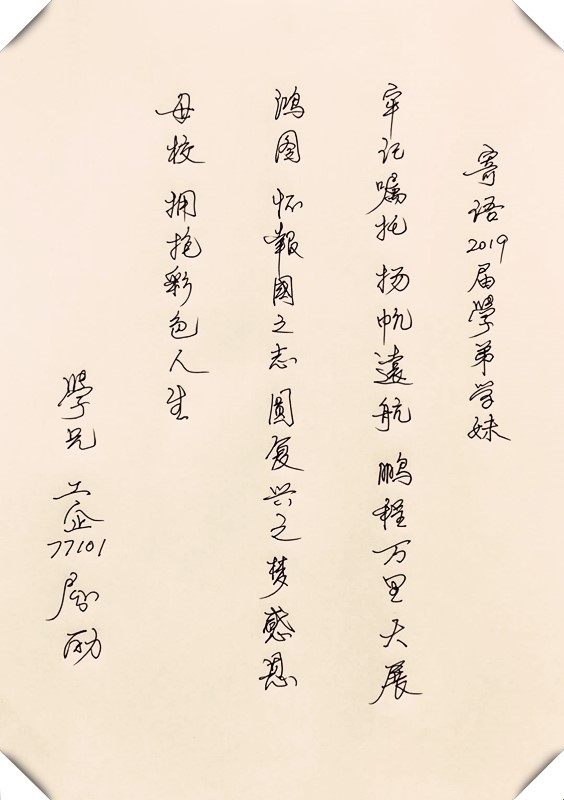 寄语2019届學弟学妹
牢记嘱托 扬帆遠航 鹏程万里 大展
鸿图 怀報國之志 圆复兴之梦 感恩
母校 拥抱彩色人生
學兄 工企77101 励